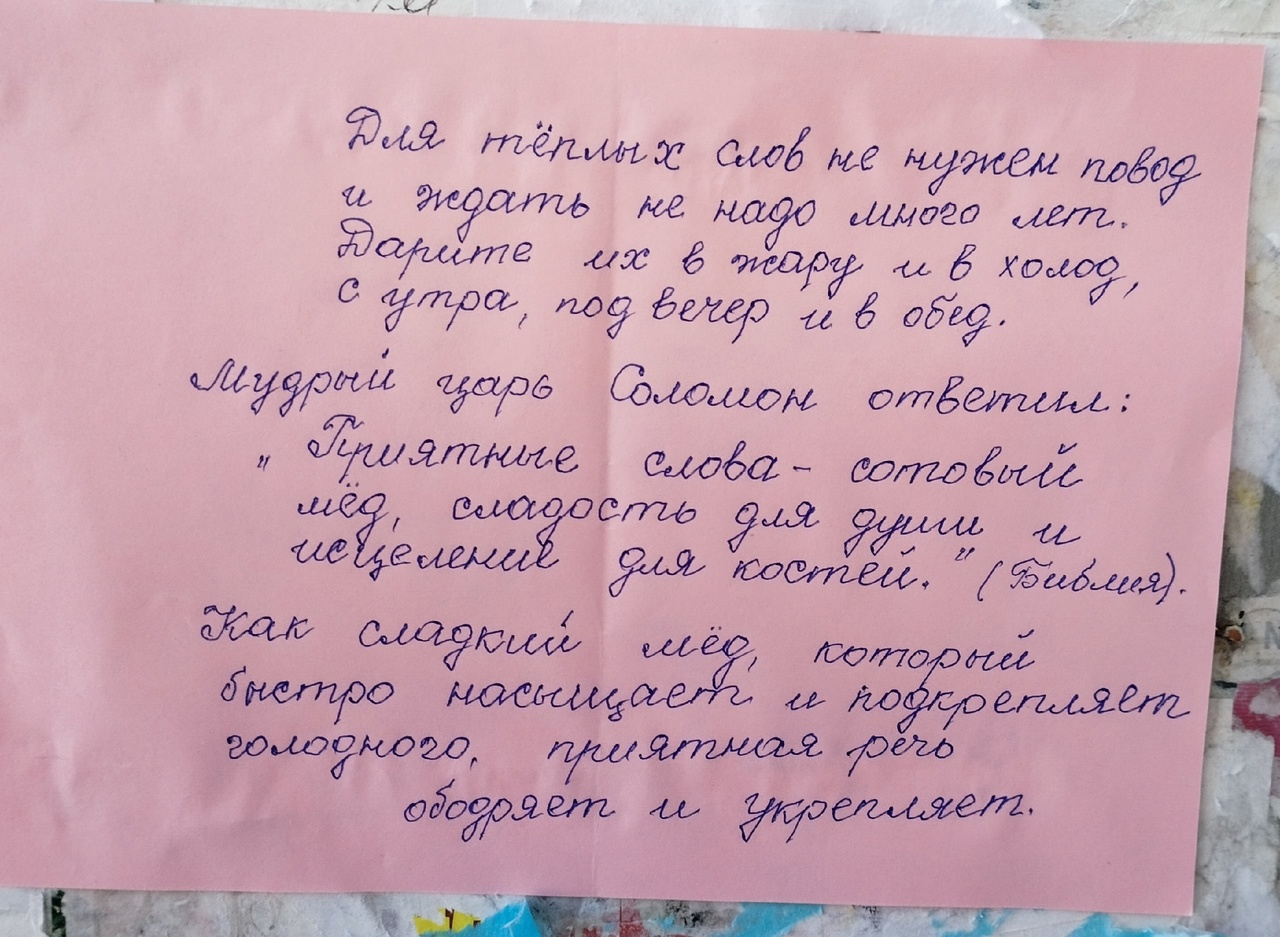 Для тёплых слов не нужен повод
и ждать не надо много лет.
Дарите их в жару и в холод,
с утра, под вечер и в обед.
Мудрый царь Соломон ответил:
„ Приятные слова - сотовый
мёд, сладость для души и
исцеление для костей." (Библия).
Как сладкий мёд, который
быстро насыщает и подкрепляет
голодного, приятная речь
ободряет и укрепляет.